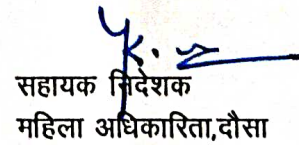 सहायक निदेशक
महिला अधिकारिता,दौसा